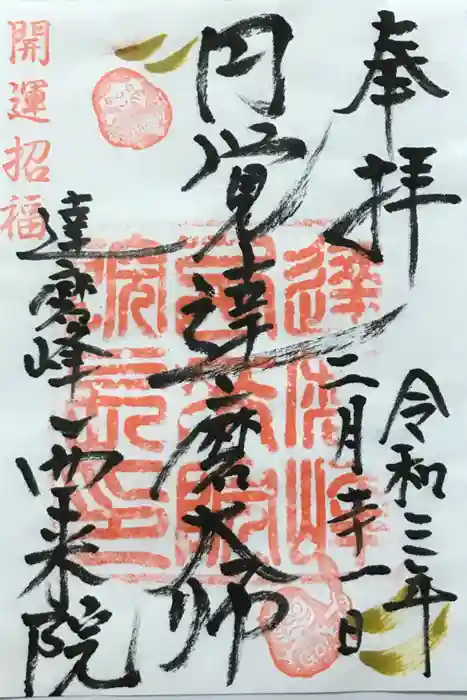 奉拝
令和三年
二月廿一日
円覚達磨大師
達磨峰西来院
開運招福